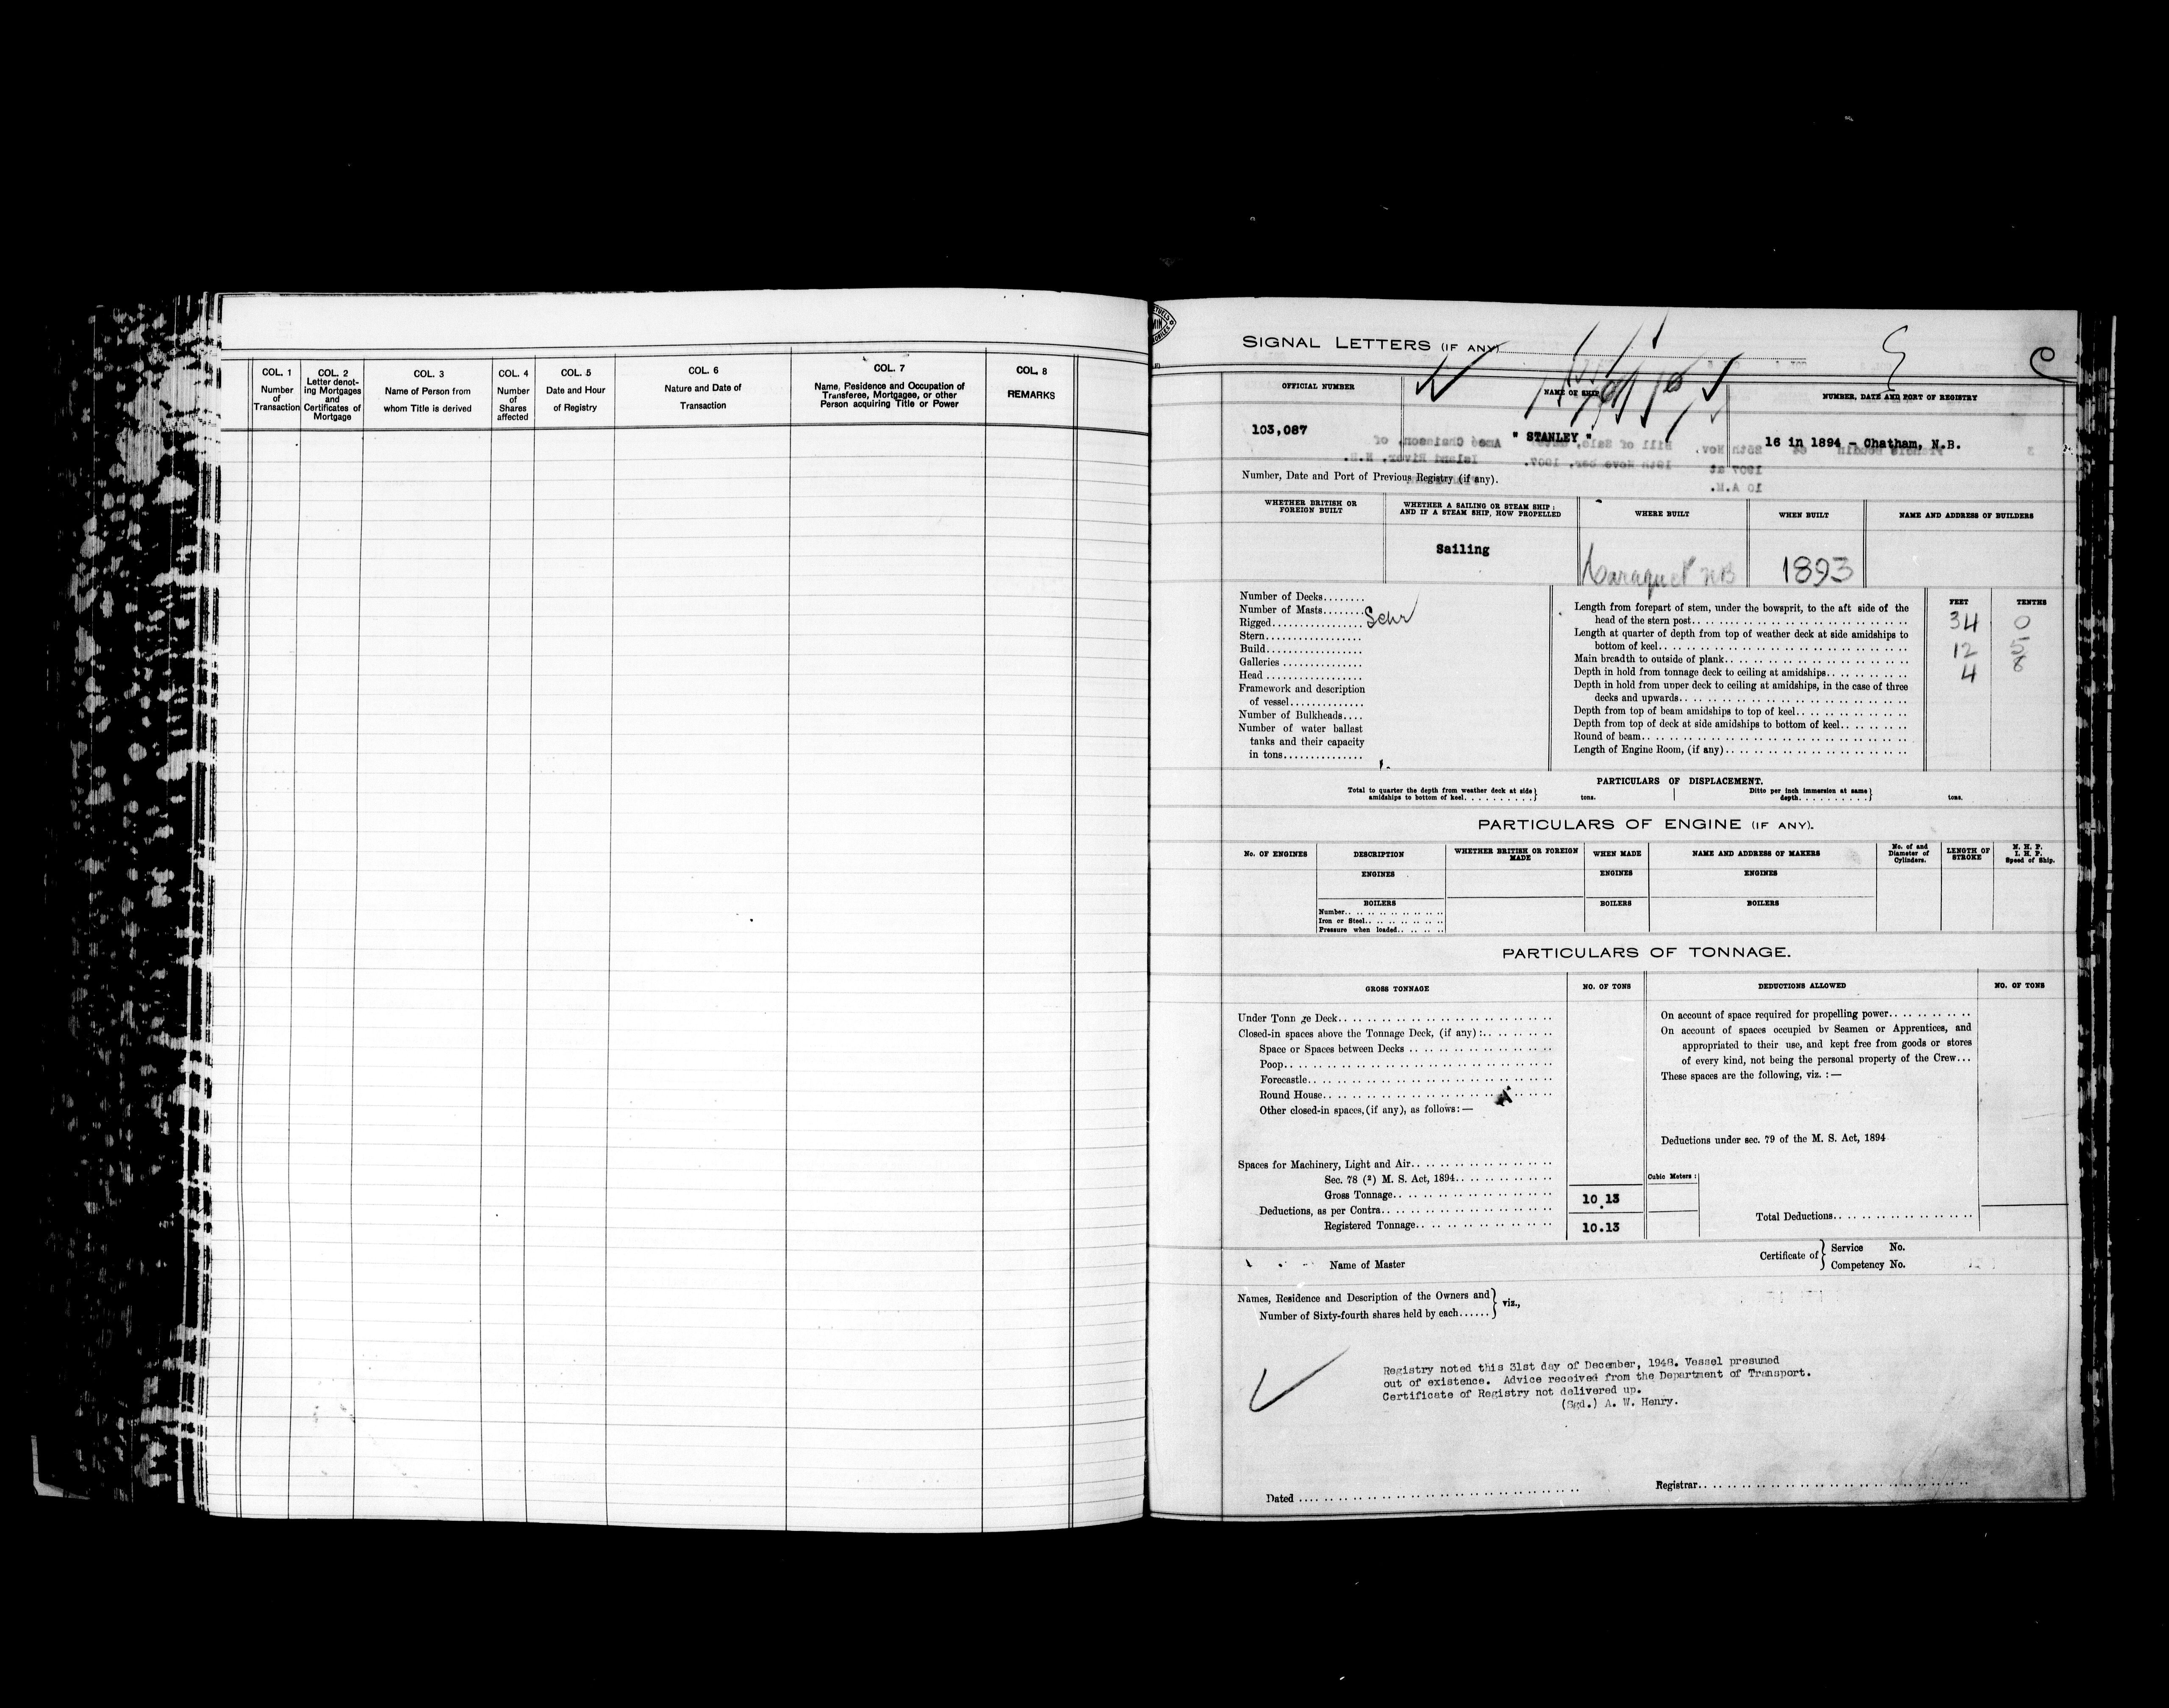 COL. 1
Number
of
Transaction
COL. 2
Letter denot-
ing Mortgages
and
Certificates of
Mortgage
COL. 3
Name of Person from
whom Title is derived
COL. 4
Number
of
Shares
affected
COL. 5
Date and Hour
of Registry
COL. 6
Nature and Date of
Transaction
COL. 7
Name, Residence and Occupation of
Transferee, Mortgagee, or other
Person acquiring Title or Power
COL. 8
REMARKS
SIGNAL LETTERS (IF ANY)
OFFICIAL NUMBER
NAME OF SHIP
NUMBER, DATE AND PORT OF REGISTRY
103,087
" STANLEY "
16 in 1894 - Chatham, N.B.
Number, Date and Port of Previous Registry (if any).
WHETHER BRITISH OR
FOREIGN BUILT
WHETHER A SAILING OR STEAM SHIP;
AND IF A STEAM SHIP, HOW PROPELLED
WHERE BUILT
WHEN BUILT
NAME AND ADDRESS OF BUILDERS
Sailing
Caraquet NB
1893
Number of Decks........
Number of Masts........
Rigged................. Schr
Stern..................
Build.................
Galleries ...............
Head ..................
Framework and description
of vessel..............
Number of Bulkheads....
Number of water ballast
tanks and their capacity
in tons...............
FEET
TENTHS
Length from forepart of stem, under the bowsprit, to the aft side of the
head of the stern post.. 34 0
Length at quarter of depth from top of weather deck at side amidships to
bottom of keel..
Main breadth to outside of plank.. 12 5
Depth in hold from tonnage deck to ceiling at amidships.. 4 8
Depth in hold from upper deck to ceiling at amidships, in the case of three
decks and upwards..
Depth from top of beam amidships to top of keel..
Depth from top of deck at side amidships to bottom of keel..
Round of beam..
Length of Engine Room, (if any)..
PARTICULARS OF DISPLACEMENT.
Total to quarter the depth from weather deck at side
amidships to bottom of keel. tons.
Ditto per inch immersion at same
depth. tons.
PARTICULARS OF ENGINE (IF ANY).
No. OF ENGINES
DESCRIPTION
WHETHER BRITISH OR FOREIGN
MADE
WHEN MADE
NAME AND ADDRESS OF MAKERS
No. of and
Diameter of
Cylinders.
LENGTH OF
STROKE
N. H. P.
I. H. P.
Speed of Ship.
ENGINES
ENGINES
ENGINES
BOILERS
BOILERS
BOILERS
Number..
Iron or Steel..
Pressure when loaded..
PARTICULARS OF TONNAGE.
GROSS TONNAGE
NO. OF TONS
DEDUCTIONS ALLOWED
NO. OF TONS
Under Tonn ge Deck..
Closed-in spaces above the Tonnage Deck, (if any) :..
Space or Spaces between Decks ..
Poop..
Forecastle..
Round House..
Other closed-in spaces, (if any), as follows: —
Spaces for Machinery, Light and Air..
Sec. 78 (2) M. S. Act, 1894..
Gross Tonnage.. 10 13
Deductions, as per Contra..
Registered Tonnage.. 10.13
On account of space required for propelling power..
On account of spaces occupied by Seamen or Apprentices, and
appropriated to their use, and kept free from goods or stores
of every kind, not being the personal property of the Crew...
These spaces are the following, viz. : —
Deductions under sec. 79 of the M. S. Act, 1894
Cubic Meters :
Total Deductions..
Name of Master
Certificate of
Service No.
Competency No.
Names, Residence and Description of the Owners and
Number of Sixty-fourth shares held by each......
viz.,
Registry noted this 31st day of December, 1948. Vessel presumed
out of existence. Advice received from the Department of Transport.
Certificate of Registry not delivered up.
(Sgd.) A. W. Henry.
Dated ....
Registrar..